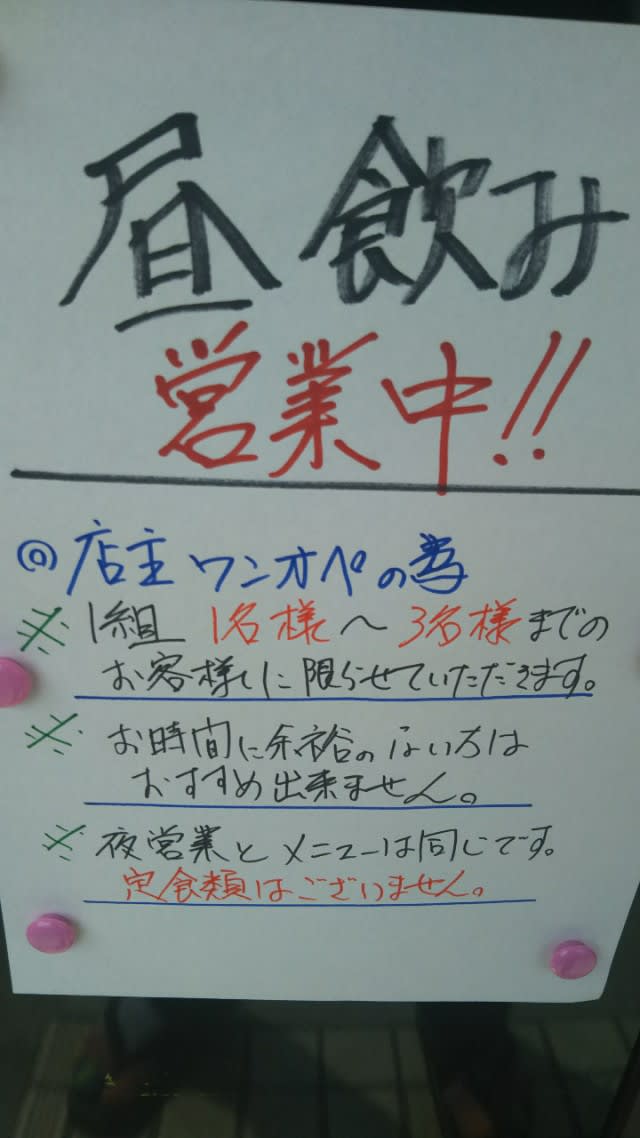 昼飲み
営業中!!
◎店主ワンオペの為
※1組 1名様〜3名様までの
お客様に限らせていただきます。
※お時間に余裕のない方は
おすすめ出来ません。
※夜営業とメニューは同じです。
定食類はございません。